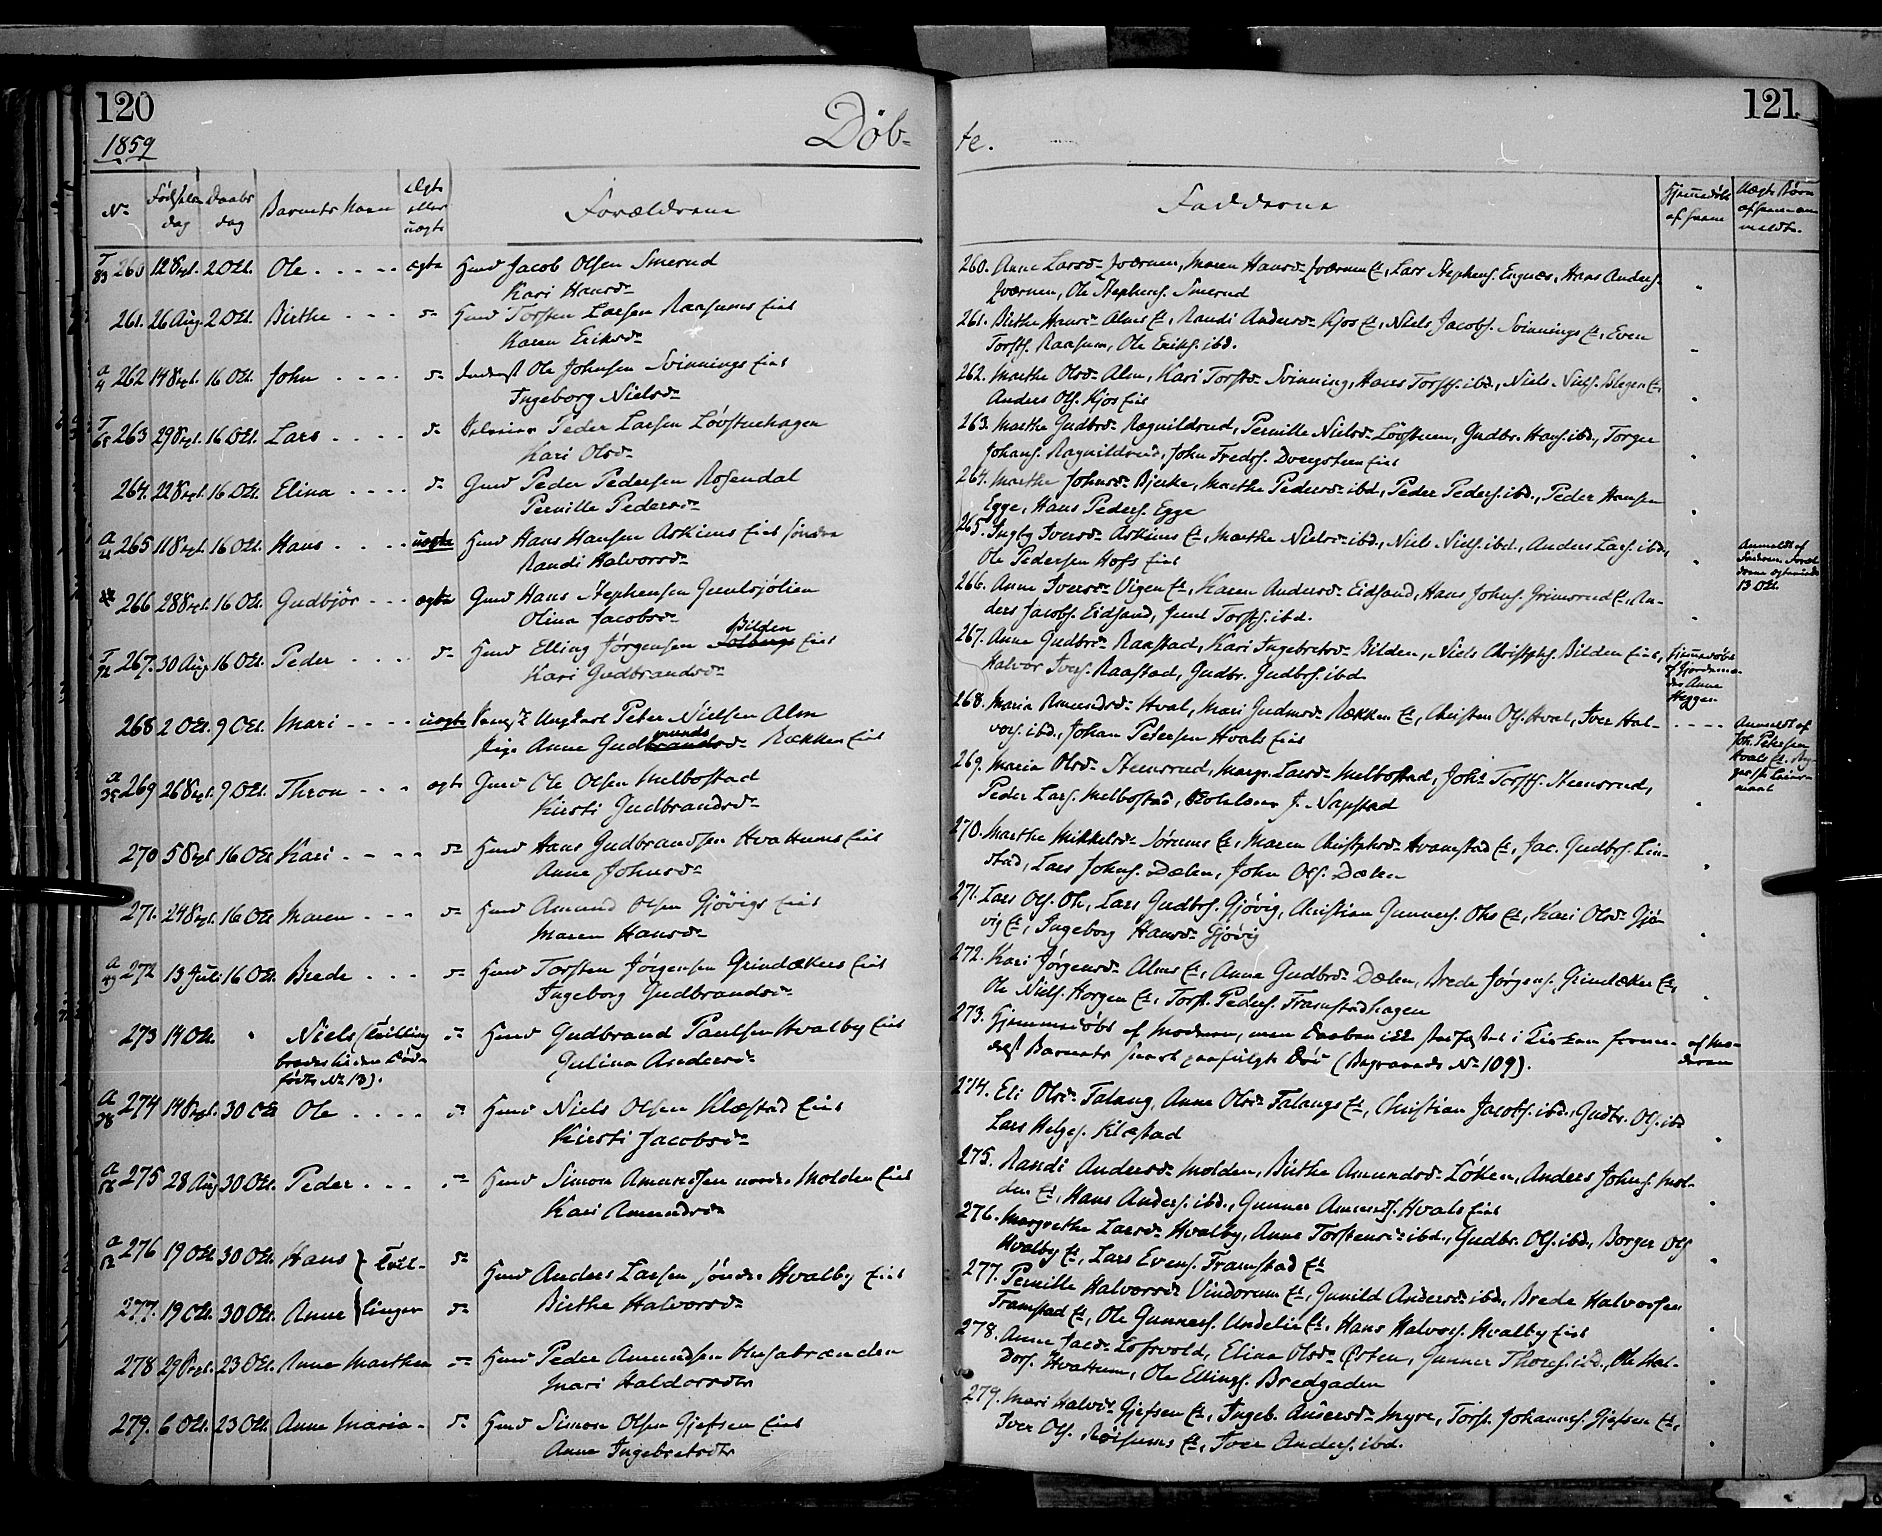 120
1859
Døb-
No
Fødsels
dag
Daabs
dag
Barnets Navn
Ægte
eller
uægte
Forældrene
T
83 260 12 Sept. 2 Oct. Ole ægte Huus Jacob Olsen Smerud
Kari Hansd.
261. 26 Aug. 2 Oct. Birthe d. Huus Torsten Larsen Raasums Eie
Karen Eriksd.
262 14 Sept. 16 Oct. John d. Inderst Ole Johnsen Svinnings Eie
Ingeborg Nielsd.
T
65 263 29 Sept. 16 Oct. Lars d. Peder Larsen Løvstuehagen
Kari Olsd.
264. 22 Sept. 16 Oct. Elina d. Gmd Peder Pedersen Rosendal
Pernille Pedersd.
265 11 Sept. 16 Oct. Hans uægte Huus Hans Hansen Askims Eie søndre
Randi Halvorsd.
266 28 Sept. 16 Oct. Gudbjør ægte Gmd Hans Stephensen
Olina Jacobsd.
267. 30 Aug. 16 Oct. Peder d. Huus Elling Jørgensen Bilden Eie
Kari Gudbrandsd.
268 2 Oct. 9 Oct. Mari uægte Ungkarl Peter Nielsen Alm
Pige Anne Gudmundsd. Rækken Eie
269 26 Sept. 9 Oct. Thron ægte Gmd Ole Olsen Melbostad
Kirsti Gudbrandsd.
270 5 Sept. 16 Oct. Kari d. Huus Hans Gudbrandsen Hvattums Eie
Anne Johnsd.
271. 24 Sept. 16 Oct. Maren d. Huus Amund Olsen Gjøvigs Eie
Maren Hansd.
272 13 Juli 16 Oct. Brede d. Huus Torsten Jørgensen Grindakers Eie
Ingeborg Gudbrandsd.
273 14 Oct. Niels (Tvilling d. Huus Gudbrand Paulsen Hvalby Eie
Gulina Andersd.
fødte No 13).
274 14 Sept. 30 Oct. Ole d. Huus Niels Olsen Klæstad Eie
Kirsti Jacobsd.
275 28 Aug. 30 Oct. Peder d. Huus Simon Amundsen nordre Molden Eie
Kari Amundsd.
276 19 Oct. 30 Oct. Hans } Tvil- d.
Huus Anders Larsen søndre Hvalby Eie
277. 19 Oct. 30 Oct. Anne } linger d. Birthe Halvorsd.
278 29 Sept. 23 Oct. Anne Marthea d. Huus Peder Amundsen
Mari Haldorsd.
279. 6 Oct. 23 Oct. Anne Maria d. Huus Simon Olsen Gjefsen Eie
Anne Ingebretsdtr
121
te.
Fadderne
Hjemmedøbt
af hvem
Uægte Børn
af hvem an-
meldt.
260. Anne Larsd. Hværnen, Maren Hansd. Hværnen E., Lars Stephens. Engnæs, Hans Anders.
Hværnen, Ole Stephens. Smerud
261. Birthe Hansd. Alms E., Randi Andersd. Kjos E., Niels Jacobs. Svinnings E., Even
Torsts. Raasum, Ole Eriks. ibd.
262. Marthe Olsd. Alm, Kari Torstd. Svinning, Hans Torsts. ibd., Niels Niels. E.,
Anders Ols. Kjos Eie
263. Marthe Gudbrd. Ragnildrud, Pernille Nielsd. Løvstuen, Gudbr. Hans. ibd., Torger
Johans. Ragnildrud, John Freds. Dvergsteen Eie
264. Marthe Johnsd. Bjerke, Marthe Pedersd. ibd., Peder Peders. ibd., Peder Hansen
Egge, Hans Peders. Egge
265. Ingbg Iversd. Askims E., Marthe Nielsd. ibd., Niels Niels. ibd., Anders Lars. ibd.,
Ole Pedersen Hofs Eie
Anmeldt af
Faderen.
13 Oct.
266. Anne Iversd. Vigen E., Karen Andersd. Eidsand, Hans Johns. Grimsrud E., An-
ders Jacobs. Eidsand, Torsts. ibd.
267. Anne Gudbrd. Raastad, Kari Ingebretsd. Bilden, Niels Christophs. Bilden Eie,
Halvor Ivers. Raastad, Gudbr. Gudbrs. ibd.
Hjemmedøbt
af Gjordemo-
der Anne
Heggen
268. Maria Amundsd. Hval, Mari Gudmd. Rækken E., Christen Ols. Hval, Iver Hal-
vors. ibd., Johan Petersen Hvals Eie
Anmeldt af
Joh. Petersen
Hvals E.
269. Maria Olsd. Steensrud, Margr. Larsd. Melbostad, Johs Torsts. Steensrud,
Peder Lars. Melbostad,
270. Marthe Mikkelsd. Sørums E., Maren Christophd. Framstad E., Jac. Gudbrs. Lin-
stad, Lars Johns. Dælen, John Ols. Dælen
271. Lars Ols. Oh, Lars Gudbrs. Gjøvig, Christian Gunners. Ohs E., Kari Olsd. Gjø-
vig E., Ingeborg Hansd. Gjøvig
272. Kari Jørgensd. Alms E., Anne Gudbrd. Dælen, Brede Jørgens. Grindaker E.,
Ole Niels. Horgen E., Torst. Peders. Framstadhagen
273. Hjemmedøbt af Moderen, men Daaben ikke stadfæstet i Kirken forme-
delst Barnets snart paafulgte Død (Begravede No 109).
af Mo-
deren
274. Eli Olsd. Falang, Anne Olsd. Falangs E., Christian Jacobs. ibd., Gudbr. Ols. ibd
Lars Helges. Klæstad
275. Randi Andersd. Molden, Birthe Amundsd. Løken, Anders Johns. Mol-
den E., Hans Anders. ibd., Gunner Amunds. Hvals Eie
276. Margrethe Larsd. Hvalby, Anne Torstensd. ibd., Gudbr. Ols. ibd., Borger Ols.
Hvalby E., Lars Evens. Framstad E.
277. Pernille Halvorsd. Vindorum E., Gunild Andersd. ibd., Brede Halvorsen
Framstad E., Ole Gunners. Undelie E., Hans Halvors. Hvalby Eie
278. Anne Jacd. Lofsvold, Eline Olsd. Østen, Gunner Thores. ibd., Ole Hal-
dors. Hvattum, Ole Ellings. Bredgaden
279. Mari Halvd. Gjefsen E., Ingeb. Andersd. Myre, Torst. Johannes. Gjefsen E.,
Iver Ols. Røisums E., Iver Anders. ibd.